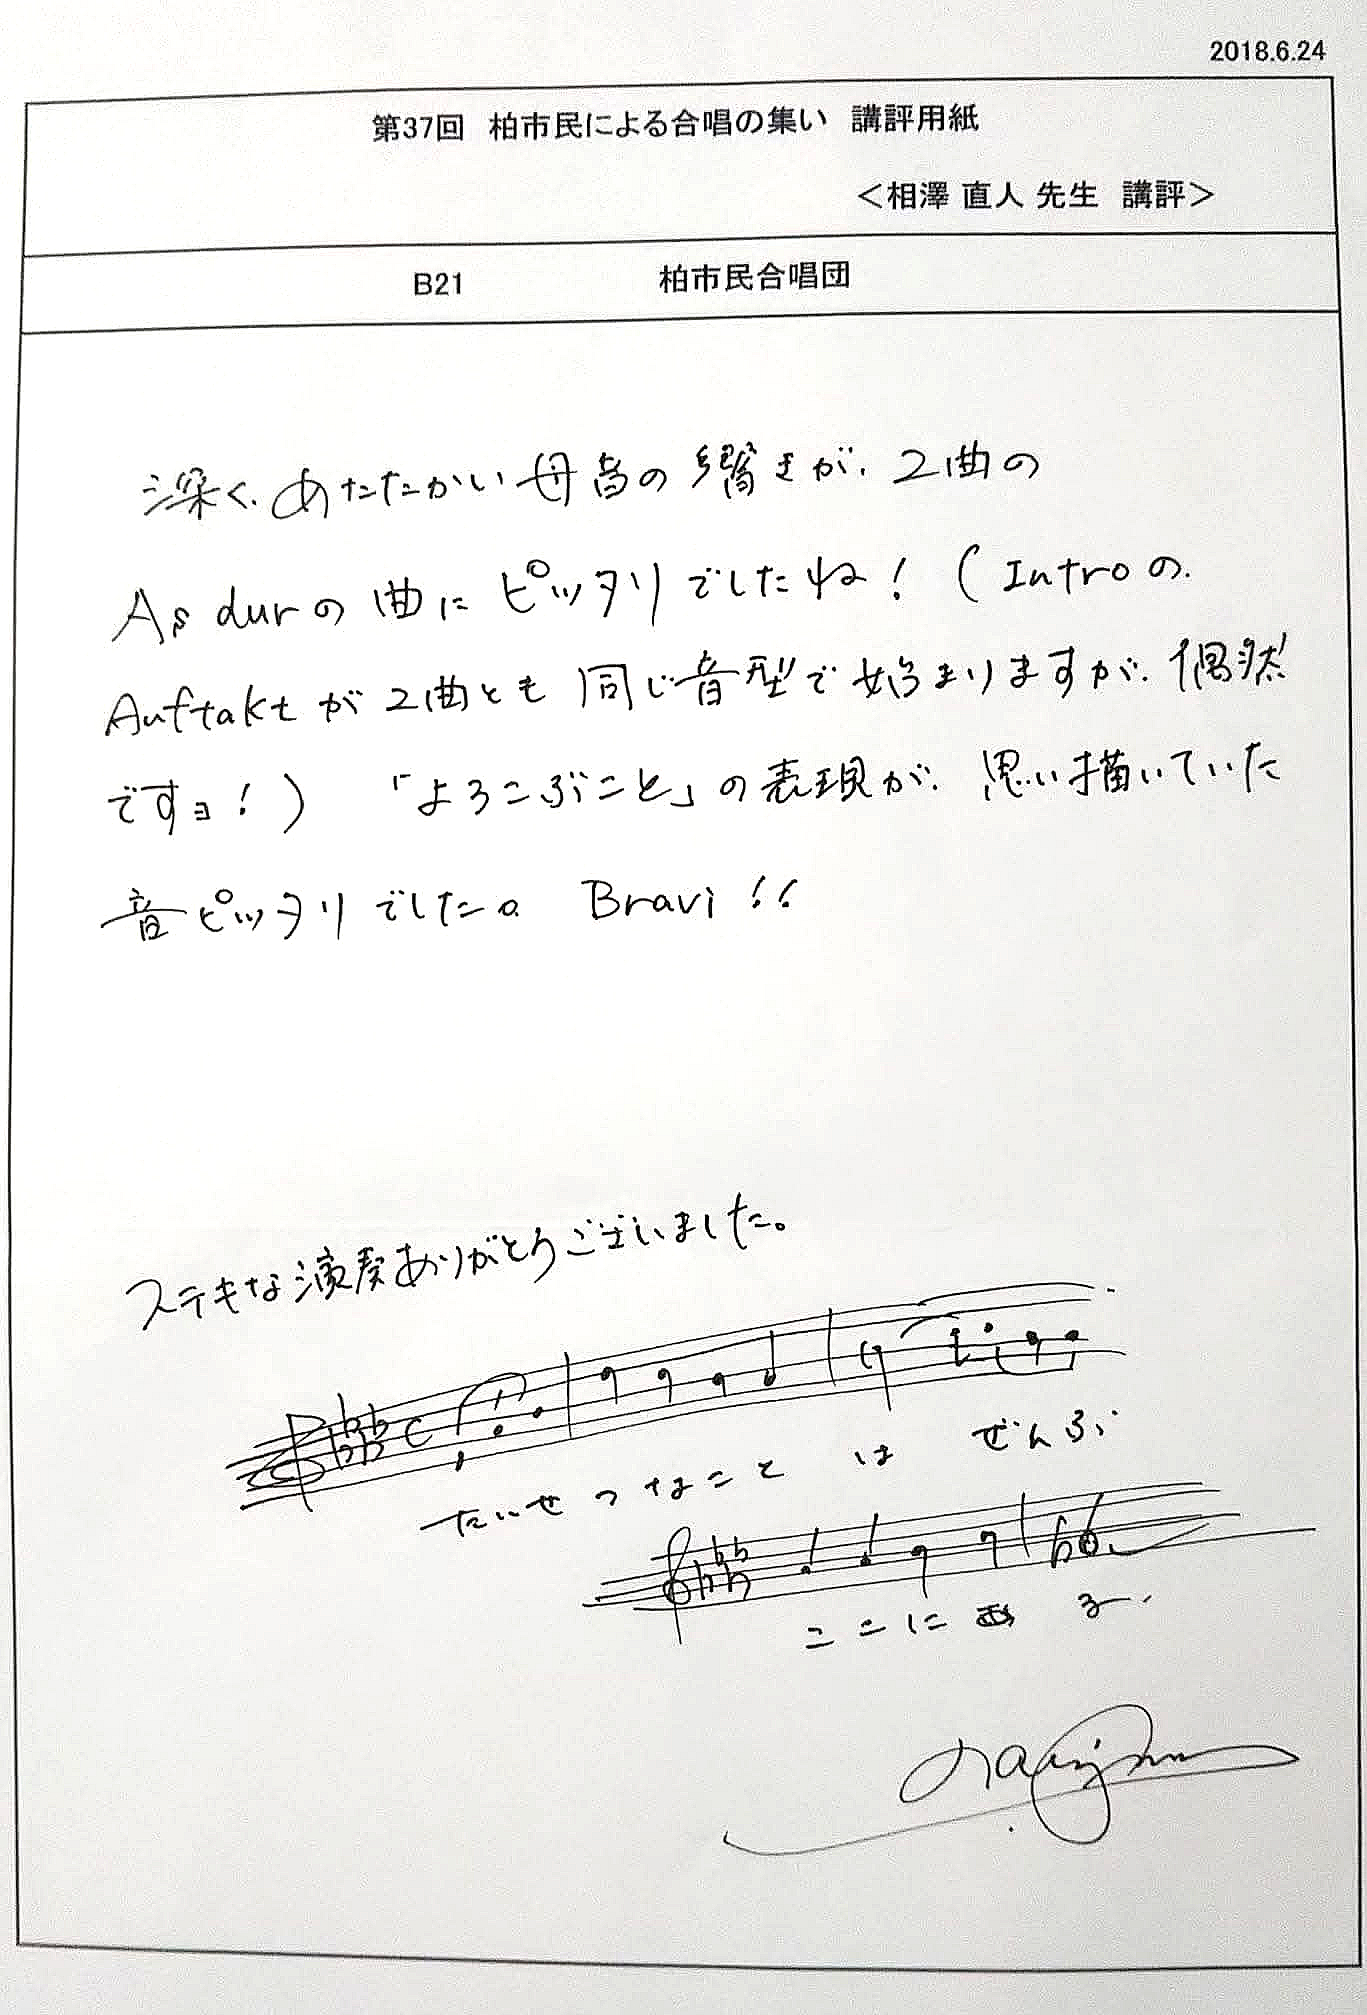 2018.6.24
第37回 柏市民による合唱の集い 講評用紙
＜相澤 直人 先生 講評＞
B21 柏市民合唱団
深く、あたたかい母音の響きが、2曲の
As durの曲にピッタリでしたね！（Introの
Auftaktが2曲とも同じ音型で始まりますが、偶然
ですョ！）「よろこぶこと」の表現が、思い描いていた
音ピッタリでした。Bravi！！
ステキな演奏ありがとうございました。
たいせつなこと は ぜんぶ
ここにある.